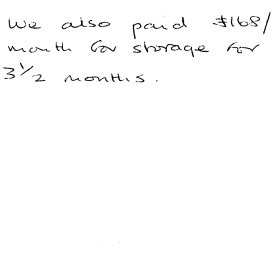 We also paid $168/
month for storage for
3 1/2 months.